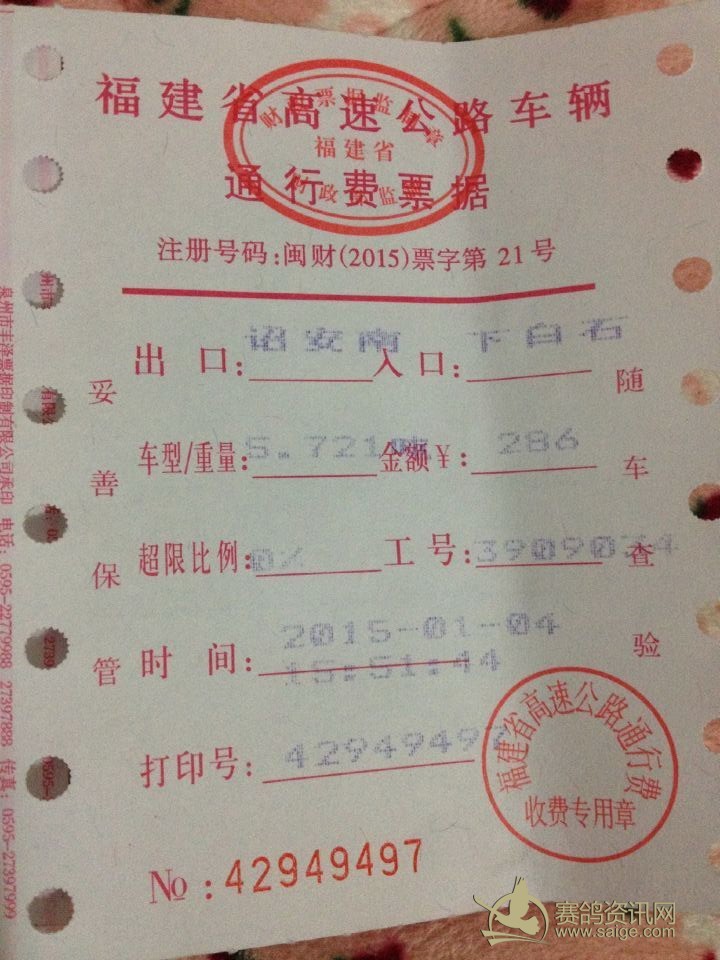 福建省高速公路车辆
通行费票据
福建省
注册号码:闽财(2015)票字第 21 号
出 口: 诏安南 入口: 下白石
车型/重量: 5.721吨 金额¥: 286
超限比例: 0% 工号: 3909034
时 间: 2015-01-04
15:51:44
打印号: 42949497
№ : 42949497
妥善保管
随车查验
福建省高速公路通行费
收费专用章
泉州市丰泽票据印刷有限公司承印 电话: 0595-22779988 27397888 传真: 0595-27397999
赛鸽资讯网
www.saige.com